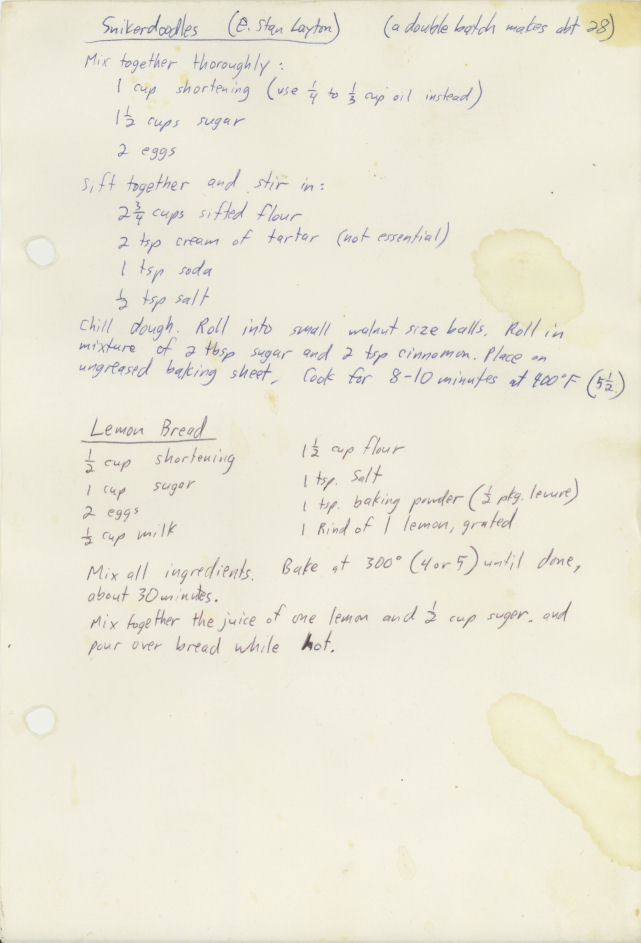 Snikerdoodles (E. Stan Layton) (a double batch makes abt 28)
Mix together thoroughly:
1 cup shortening (use 1/4 to 1/3 cup oil instead)
1 1/2 cups sugar
2 eggs
Sift together and stir in:
2 3/4 cups sifted flour
2 tsp cream of tartar (not essential)
1 tsp soda
1/2 tsp salt
Chill dough. Roll into small walnut size balls. Roll in
mixture of 2 tbsp sugar and 2 tsp cinnamon. Place on
ungreased baking sheet. Cook for 8-10 minutes at 400°F (5 1/2)
Lemon Bread
1/2 cup shortening
1 cup sugar
2 eggs
1/2 cup milk
1 1/2 cup flour
1 tsp. Salt
1 tsp. baking powder (1/2 pkg. levure)
1 Rind of 1 lemon, grated
Mix all ingredients. Bake at 300° (4 or 5) until done,
about 30 minutes.
Mix together the juice of one lemon and 1/2 cup suger. and
pour over bread while hot.